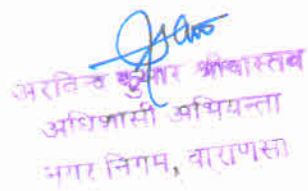 अरविन्द कुमार श्रीवास्तव
अधिशासी अभियन्ता
नगर निगम, वाराणसी